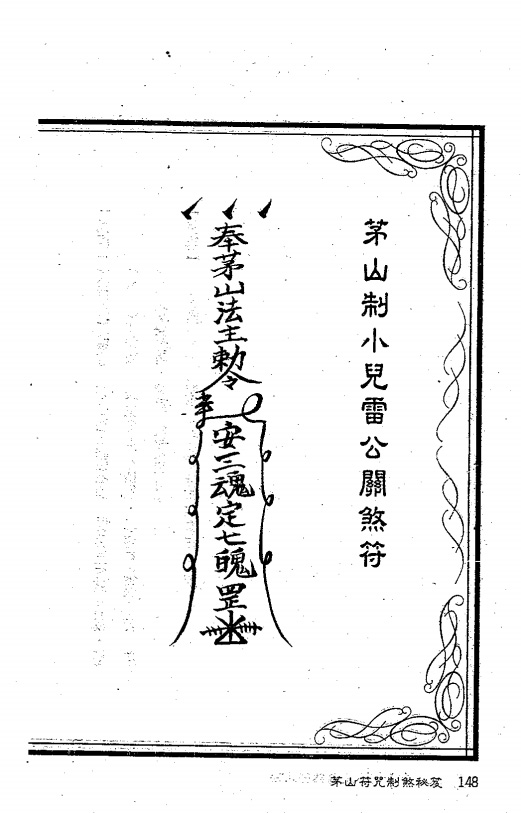 茅山制小兒雷公關煞符
奉茅山法主勅令
安三魂定七魄罡
茅山符咒制煞秘笈 148